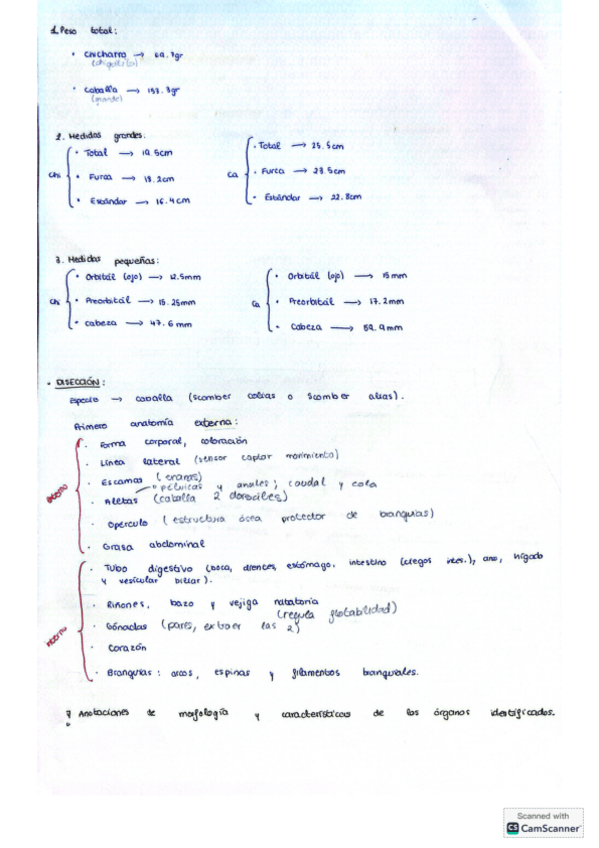 1. Peso total:
• Chicharro → 69.7gr
(chiquitito)
• Caballa → 153.3gr
(grande)
2. Medidas grandes:
Chi
• Total → 19.5cm
• Furca → 18.2cm
• Estándar → 16.4cm
Ca
• Total → 25.5cm
• Furca → 23.5cm
• Estándar → 22.8cm
3. Medidas pequeñas:
Chi
• Orbitál (ojo) → 12.5mm
• Preorbitál → 15.25mm
• Cabeza → 47.6mm
Ca
• Orbitál (ojo) → 15mm
• Preorbitál → 17.2mm
• Cabeza → 59.9mm
• DISECCIÓN:
Especie → caballa (scomber colias o scomber alias).
Primero anatomía externa:
externo
• Forma corporal, coloración
• Línea lateral (sensor captar movimiento)
• Escamas (enanas)
→ pélvicas y anales; caudal y cola
• Aletas (caballa 2 dorsales)
• Opérculo (estructura ósea protector de branquias)
• Grasa abdominal
interno
• Tubo digestivo (boca, dientes, estómago, intestino (ciegos intes.), ano, hígado
y vesícular biliar).
• Riñones, bazo y vejiga natatoria
(regula flotabilidad)
• Gónadas (pares, extraer las 2)
• Corazón
• Branquias: arcos, espinas y filamentos branquiales.
Anotaciones de morfología y características de los órganos identificados.
Scanned with
CS CamScanner